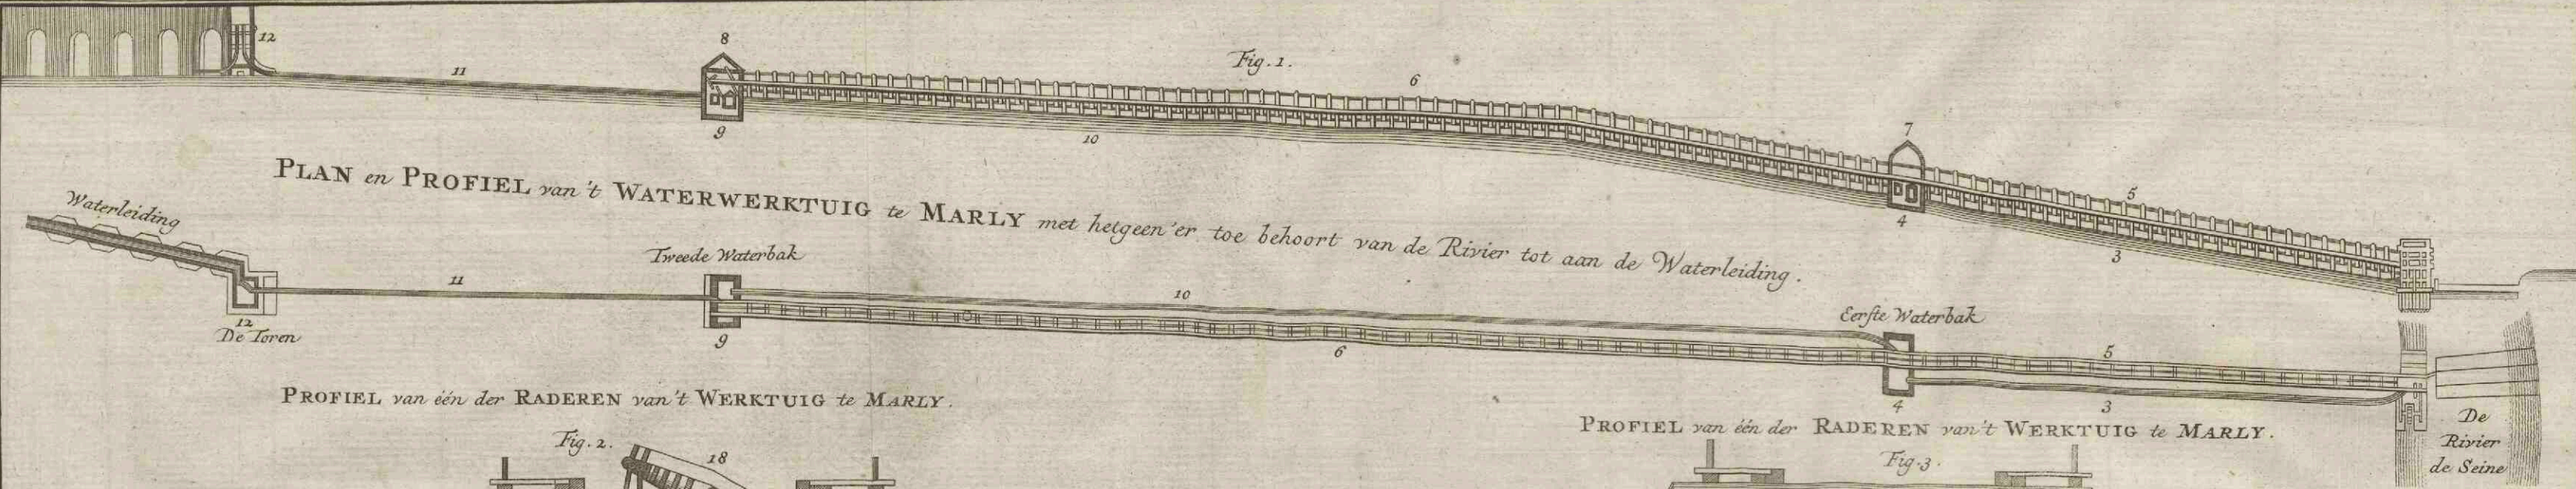 12
8
11
Fig. 1.
6
9
10
7
5
4
3
PLAN en PROFIEL van 't WATERWERKTUIG te MARLY met hetgeen 'er toe behoort van de Rivier tot aan de Waterleiding.
Waterleiding
Tweede Waterbak
11
10
Eerste Waterbak
12
De Toren
9
6
5
4
3
De
Rivier
de Seine
PROFIEL van één der RADEREN van 't WERKTUIG te MARLY.
Fig. 2.
18
PROFIEL van één der RADEREN van 't WERKTUIG te MARLY.
Fig. 3.